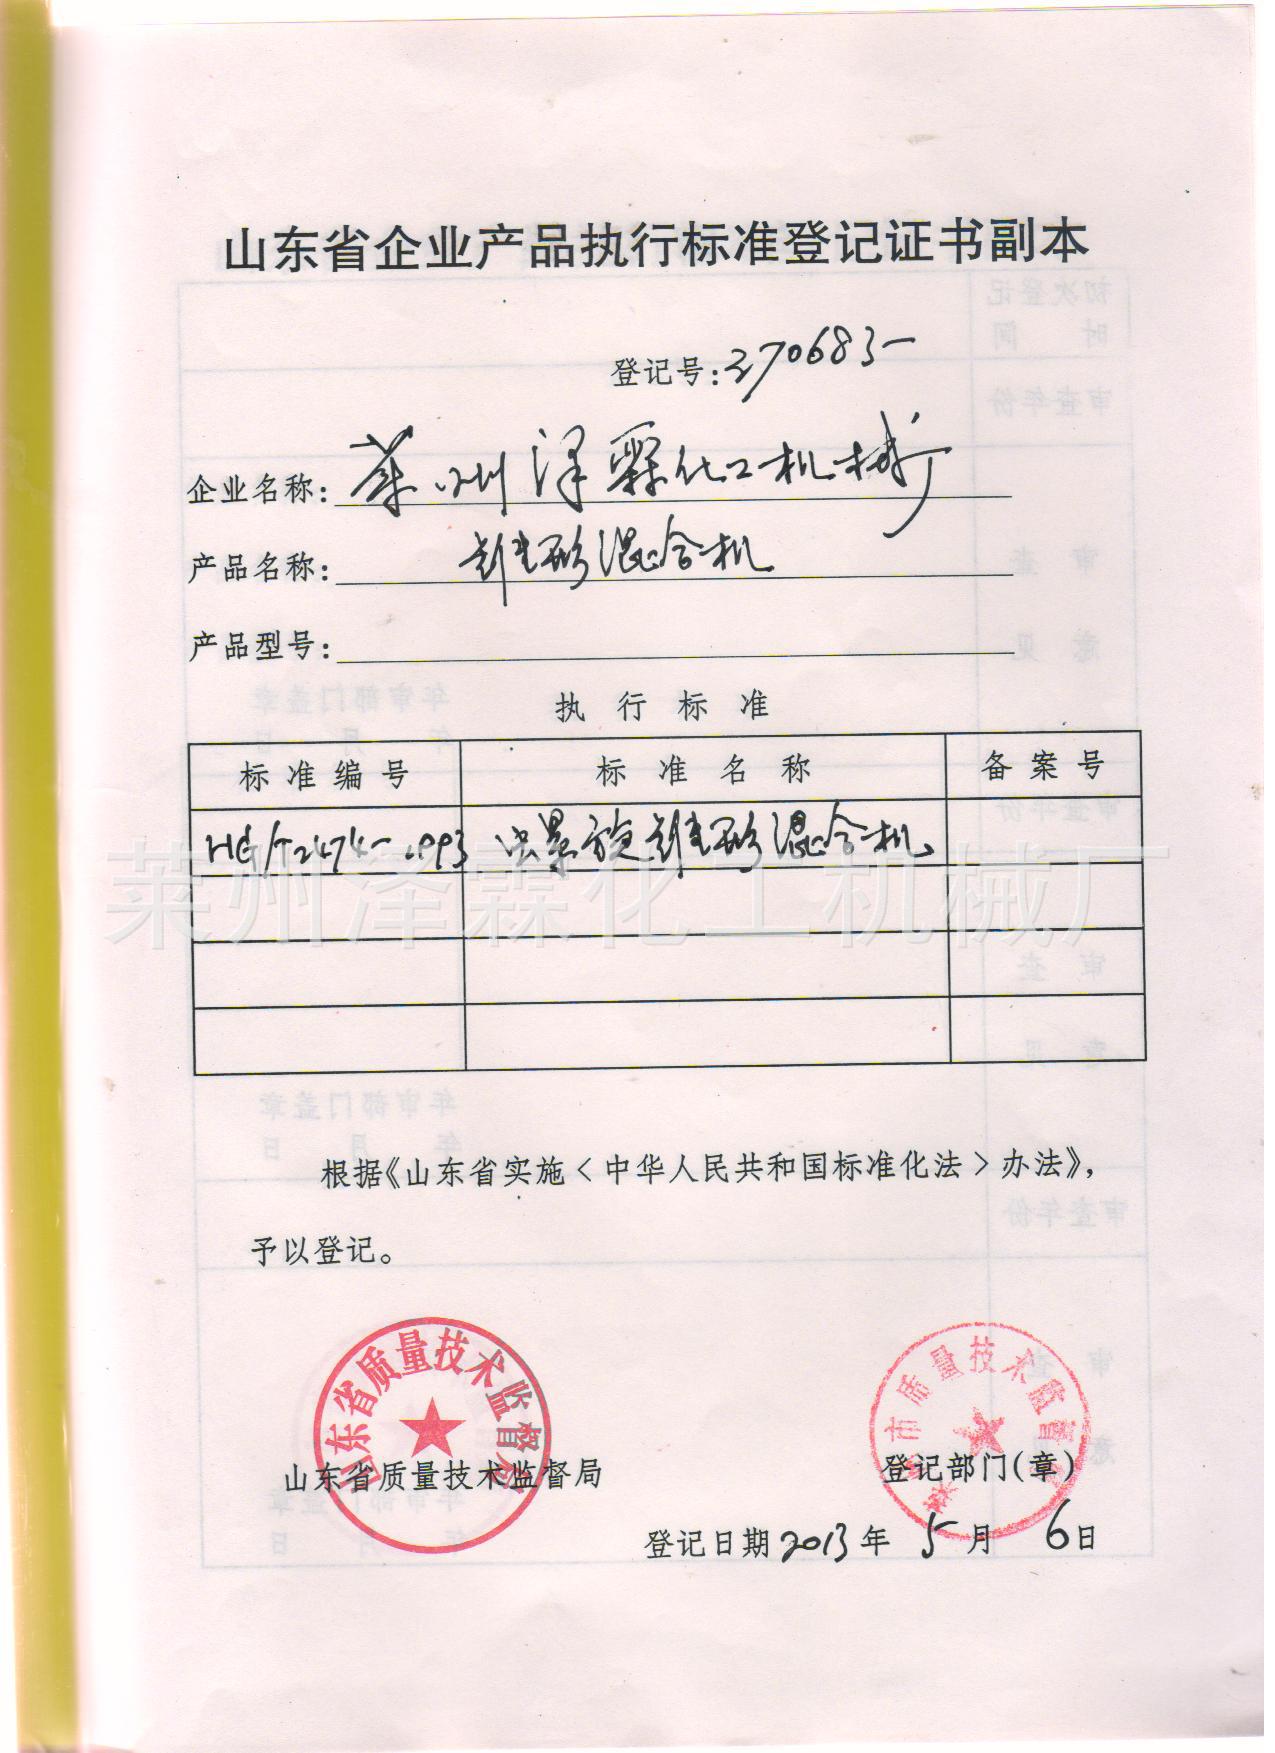 山东省企业产品执行标准登记证书副本
登记号:270683-
企业名称: 莱州泽霖化工机械厂
产品名称: 锥形混合机
产品型号:
执行标准
标准编号 标准名称 备案号
HG/T2474-1993 锥形混合机
莱州泽霖化工机械厂
根据《山东省实施<中华人民共和国标准化法>办法》,
予以登记。
山东省质量技术监督局
山东省质量技术监督局
市质量技术监督
登记部门(章)
登记日期2013年5月6日